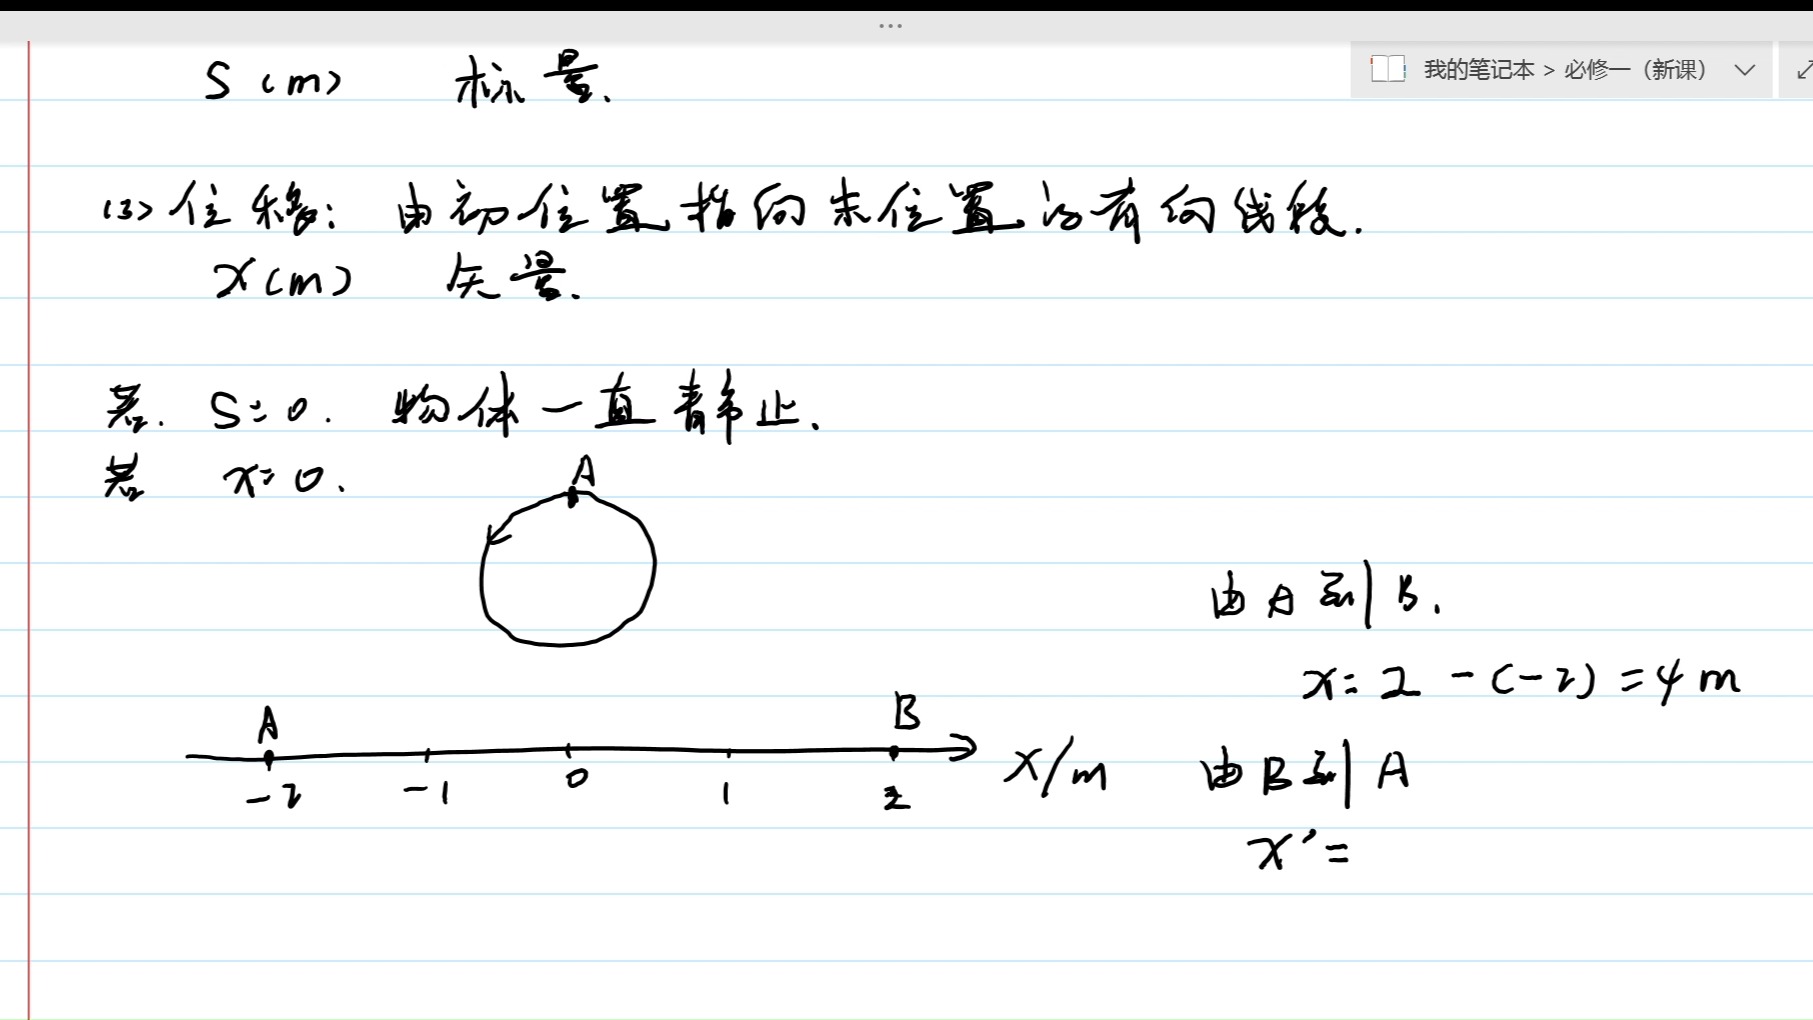 ...
我的笔记本 > 必修一（新课）
S(m) 标量.
(3) 位移: 由初位置指向末位置的有向线段.
x(m) 矢量.
若. S=0. 物体一直静止.
若 x=0.
A
由A到B.
x=2-(-2)=4m
A B
-2 -1 0 1 2 x/m
由B到A
x'=